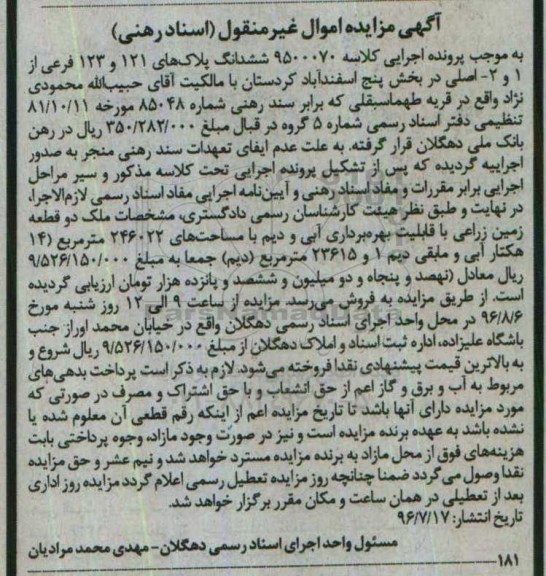 آگهی مزایده اموال غیر منقول (اسناد رهنی)
به موجب پرونده اجرایی کلاسه ۹۵۰۰۰۷۰ ششدانگ پلاک‌های ۱۲۱ و ۱۲۳ فرعی از
۱ و ۲- اصلی در بخش پنج اسفندآباد کردستان با مالکیت آقای حبیب‌الله محمودی
نژاد واقع در قریه طهماسبقلی که برابر سند رهنی شماره ۸۵۰۴۸ مورخه ۸۱/۱۰/۱۱
تنظیمی دفتر اسناد رسمی شماره ۵ گروه در قبال مبلغ ۳۵۰/۲۸۲/۰۰۰ ریال در رهن
بانک ملی دهگلان قرار گرفته. به علت عدم ایفای تعهدات سند رهنی منجر به صدور
اجراییه گردیده که پس از تشکیل پرونده اجرایی تحت کلاسه مذکور و سیر مراحل
اجرایی برابر مقررات و مفاد اسناد رهنی و آیین‌نامه اجرایی مفاد اسناد رسمی لازم‌الاجرا،
در نهایت و طبق نظر هیئت کارشناسان رسمی دادگستری، مشخصات ملک دو قطعه
زمین زراعی با قابلیت بهره‌برداری آبی و دیم با مساحت‌های ۲۴۶۰۲۲ مترمربع (۱۴
هکتار آبی و مابقی دیم ۱ و ۲۳۶۱۵ مترمربع (دیم) جمعا به مبلغ ۹/۵۲۶/۱۵۰/۰۰۰
ریال معادل (نهصد و پنجاه و دو میلیون و ششصد و پانزده هزار تومان ارزیابی گردیده
است. از طریق مزایده به فروش می‌رسد. مزایده از ساعت ۹ الی ۱۲ روز شنبه مورخ
۹۶/۸/۶ در محل واحد اجرای اسناد رسمی دهگلان واقع در خیابان محمد اوراز جنب
باشگاه علیزاده، اداره ثبت اسناد و املاک دهگلان از مبلغ ۹/۵۲۶/۱۵۰/۰۰۰ ریال شروع و
به بالاترین قیمت پیشنهادی نقدا فروخته می‌شود. لازم به ذکر است پرداخت بدهی‌های
مربوط به آب و برق و گاز اعم از حق انشعاب و یا حق اشتراک و مصرف در صورتی که
مورد مزایده دارای آنها باشد تا تاریخ مزایده اعم از اینکه رقم قطعی آن معلوم شده یا
نشده باشد به عهده برنده مزایده است و نیز در صورت وجود مازاد، وجوه پرداختی بابت
هزینه‌های فوق از محل مازاد به برنده مزایده مسترد خواهد شد و نیم عشر و حق مزایده
نقدا وصول می‌گردد ضمنا چنانچه روز مزایده تعطیل رسمی اعلام گردد مزایده روز اداری
بعد از تعطیلی در همان ساعت و مکان مقرر برگزار خواهد شد.
تاریخ انتشار: ۹۶/۷/۱۷
مسئول واحد اجرای اسناد رسمی دهگلان- مهدی محمد مرادیان
۱۸۱